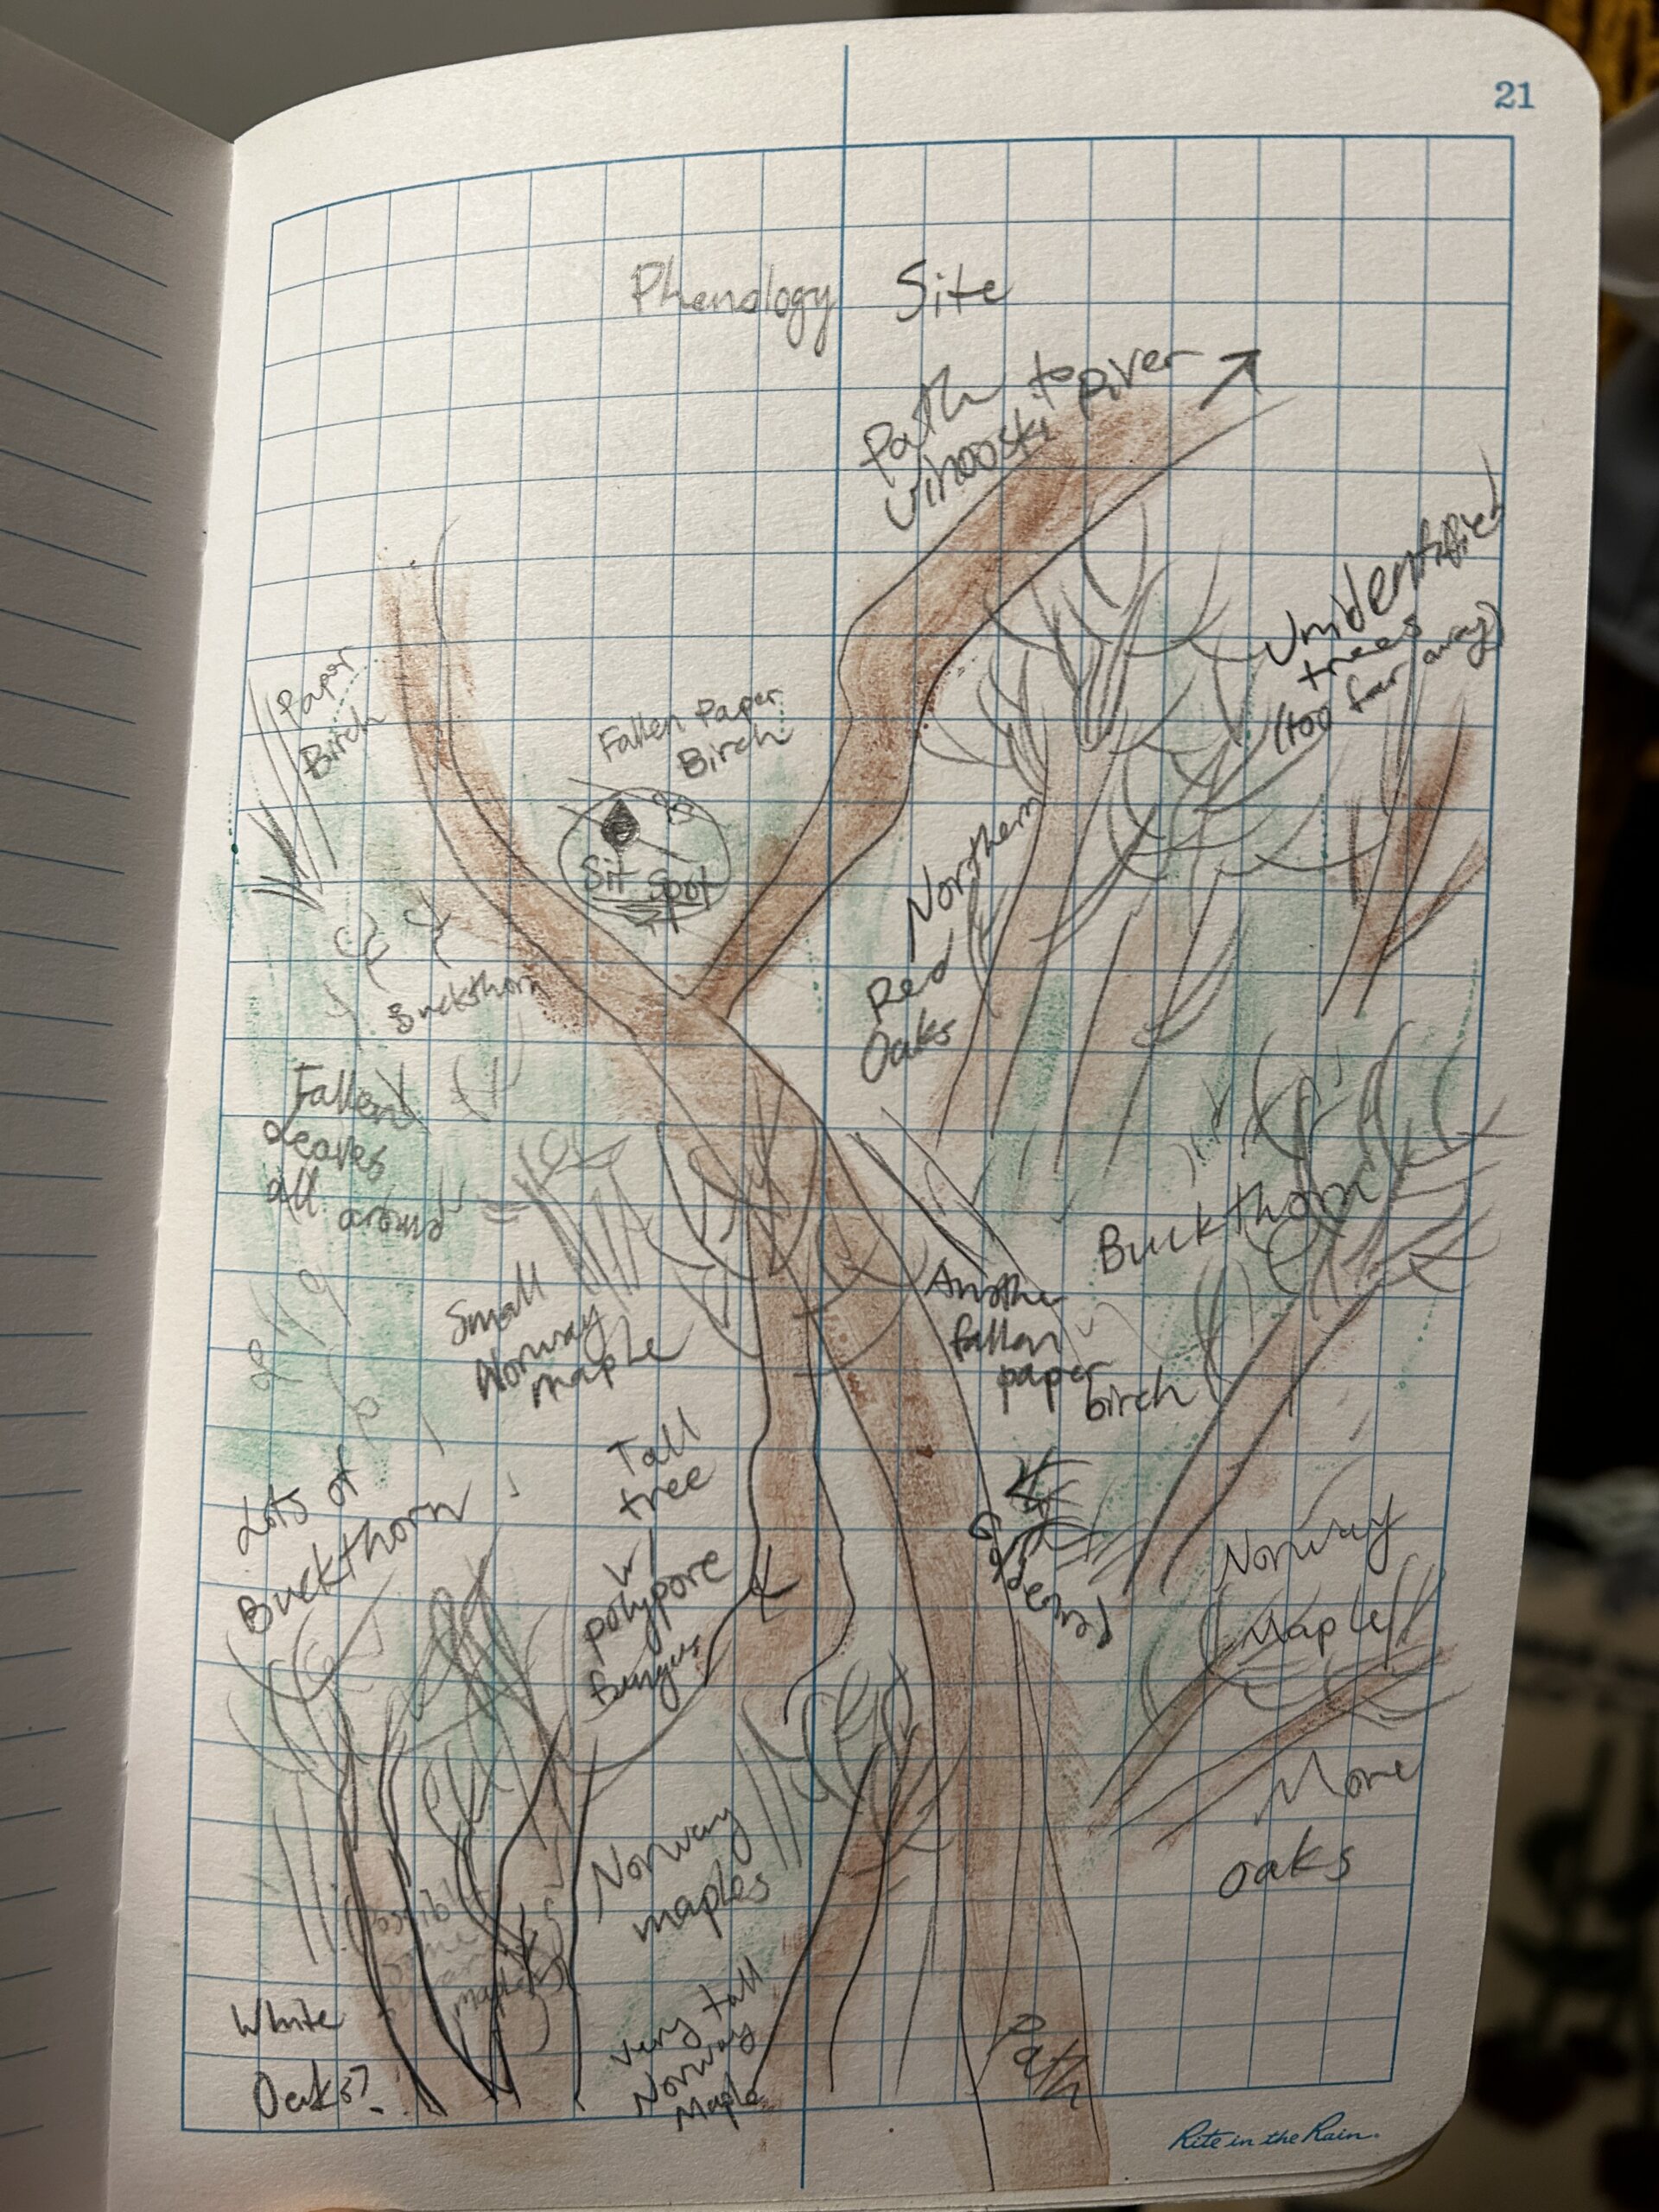 21
Phenology Site
Path to
Winooski River
Unidentified
trees
(too far away)
Paper
Birch
Fallen Paper
Birch
Sit Spot
Northern
Red
Oaks
Buckthorn
Fallen
Leaves
all around
Buckthorn
Small
Norway
maple
Another
fallen
paper
birch
Tall
tree
w/
polypore
fungus
Lots of
Buckthorn
Norway
Maple
More
oaks
Norway
maples
Possible
some
maples
White
Oaks?
Very tall
Norway
Maple
Path
Rite in the Rain.